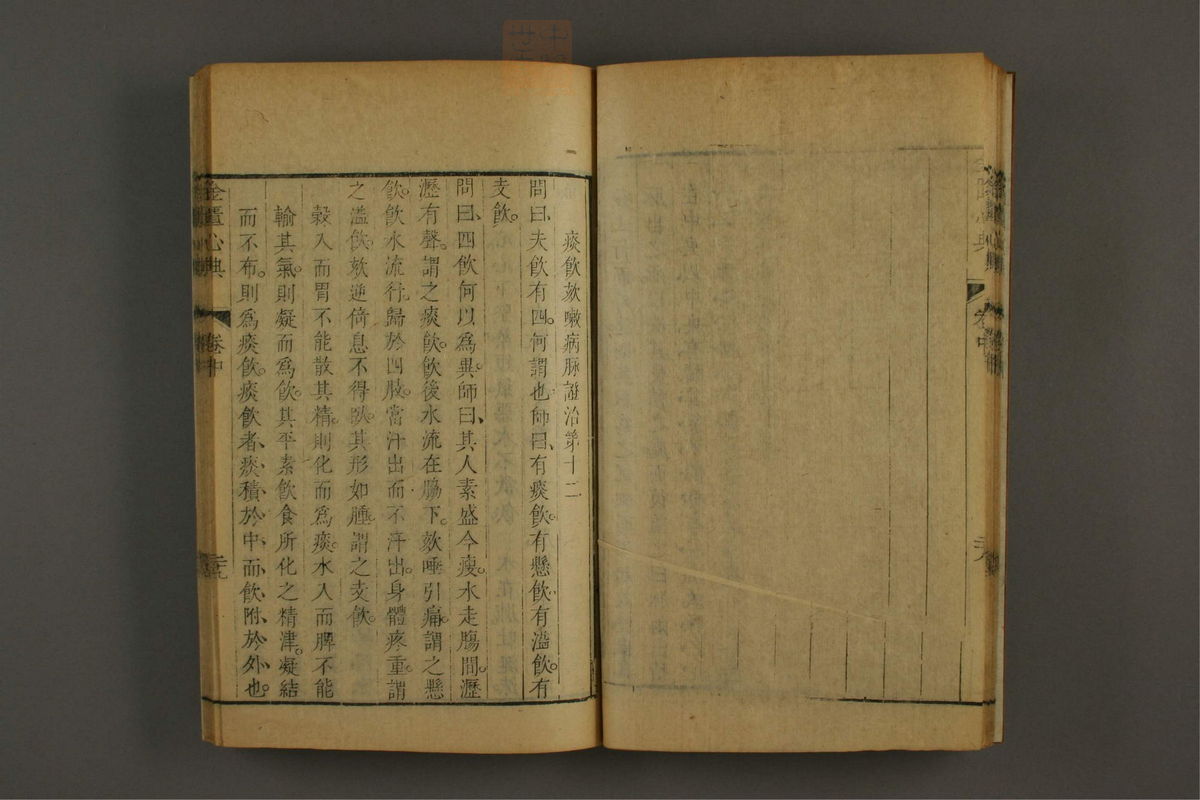 痰飲欬嗽病脉證治第十二
問曰夫飲有四何謂也師曰有痰飲有懸飲有溢飲有
支飲
問曰四飲何以爲異師曰其人素盛今瘦水走腸間瀝
瀝有聲謂之痰飲飲後水流在脇下欬唾引痛謂之懸
飲飲水流行歸於四肢當汗出而不汗出身體疼重謂
之溢飲欬逆倚息不得臥其形如腫謂之支飲
穀入而胃不能散其精則化而爲痰水入而脾不能
輸其氣則凝而爲飲其平素飲食所化之精津凝結
而不布則爲痰飲痰飲者痰積於中而飲附於外也
金匱心典
卷中
二十九